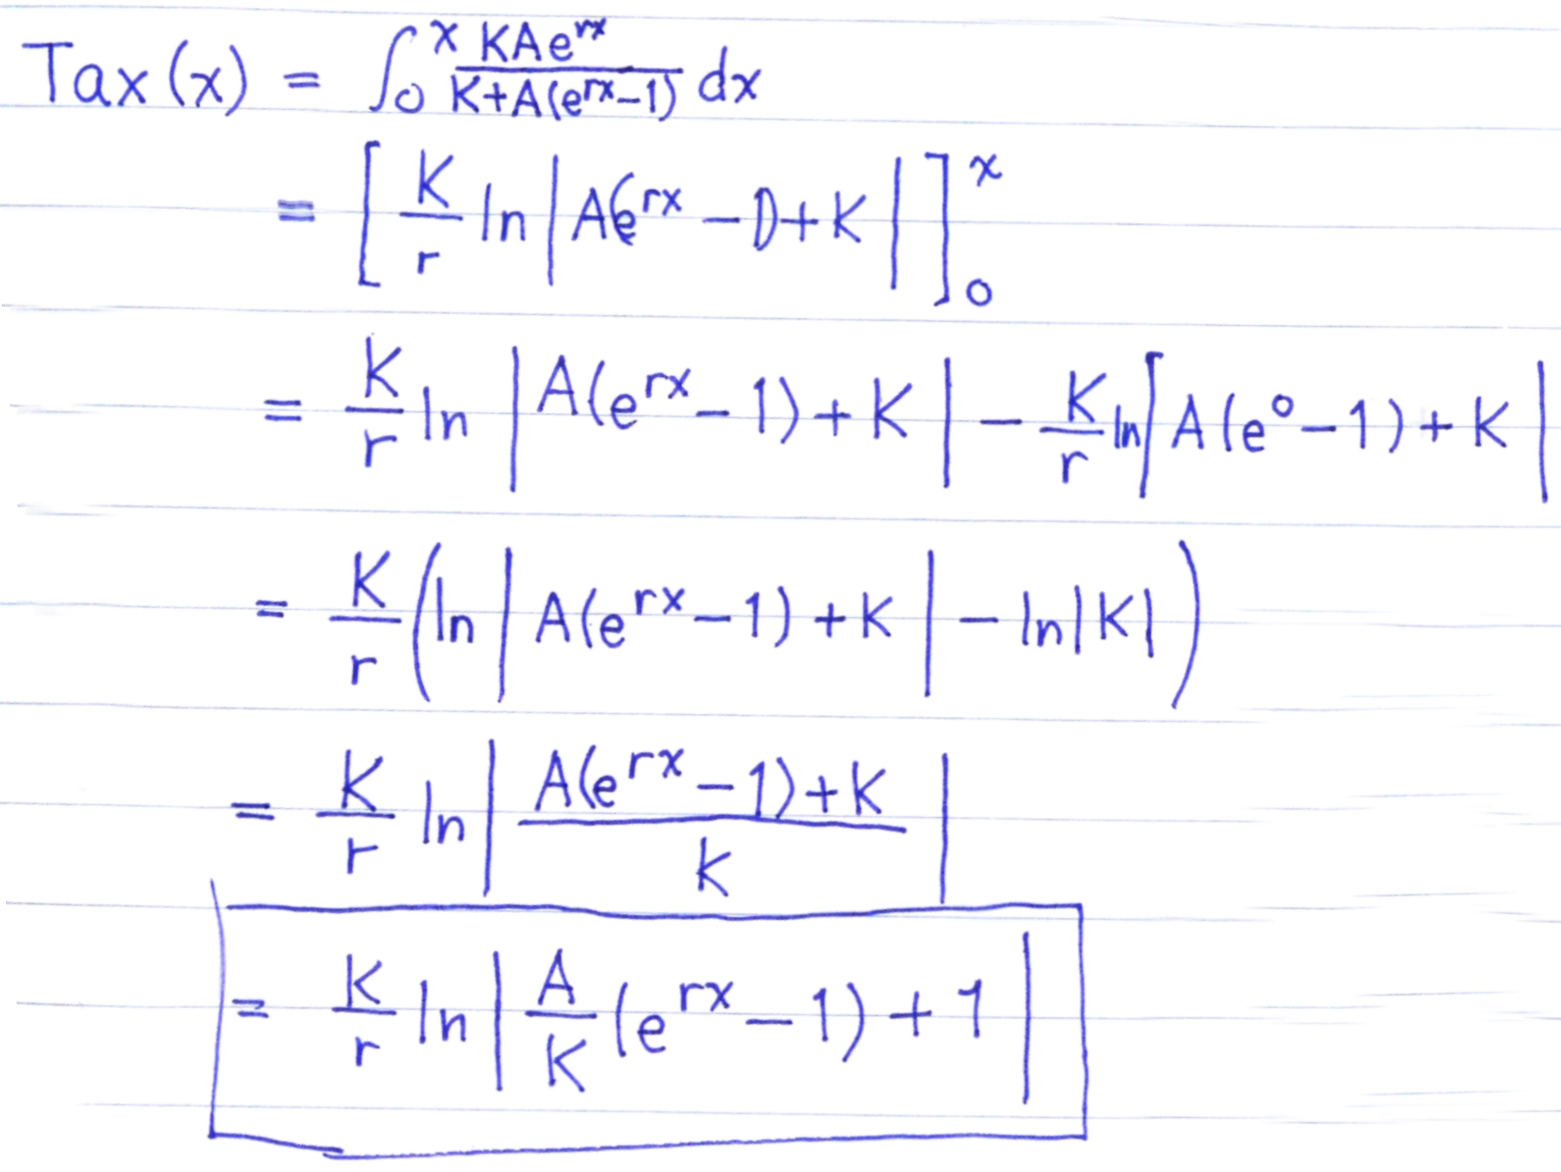 Tax(x) = ∫₀ˣ KAe^{rx} / (K+A(e^{rx}-1)) dx
= [ K/r ln | A(e^{rx} - 1)+K | ]₀ˣ
= K/r ln | A(e^{rx} - 1) + K | - K/r ln | A(e⁰ - 1) + K |
= K/r ( ln | A(e^{rx} - 1) + K | - ln|K| )
= K/r ln | (A(e^{rx} - 1)+K) / K |
= K/r ln | A/K (e^{rx} - 1) + 1 |